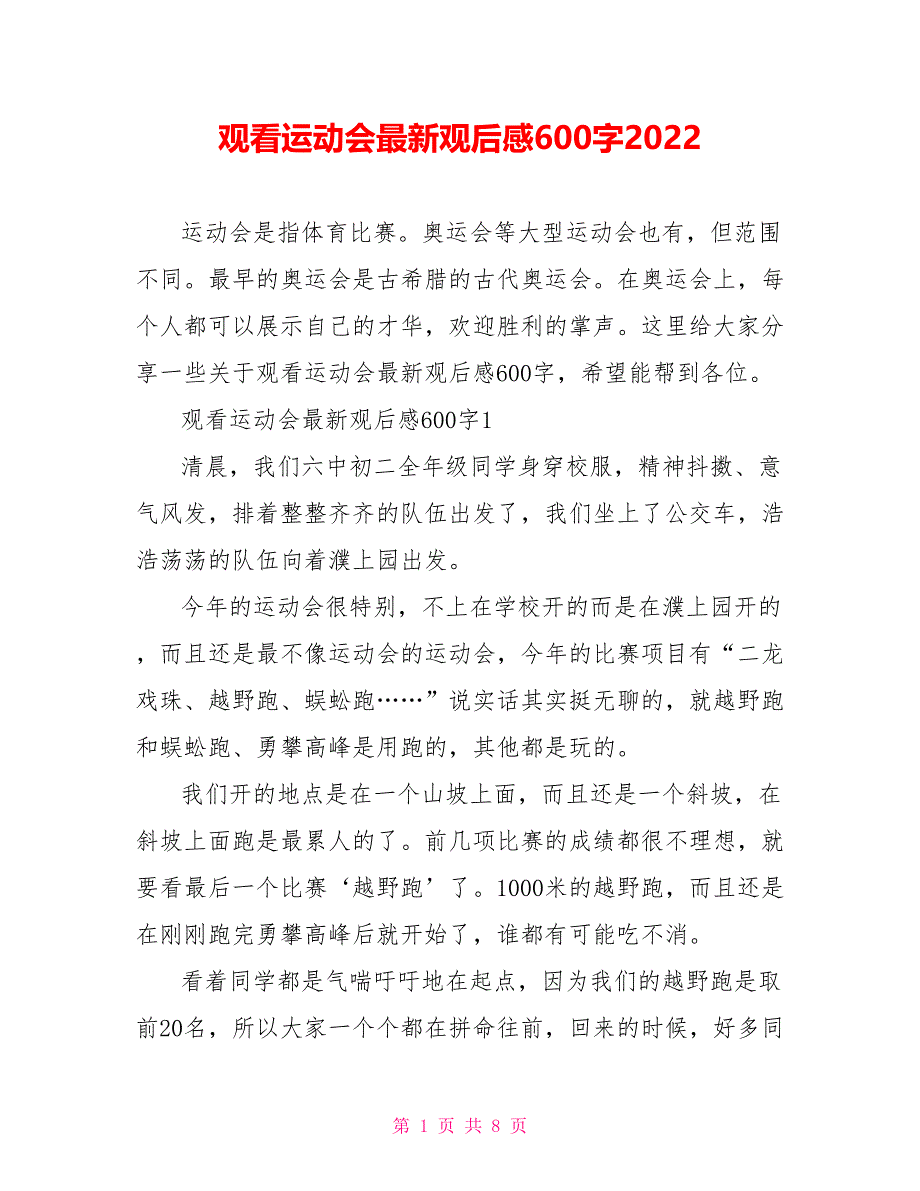 观看运动会最新观后感600字2022
运动会是指体育比赛。奥运会等大型运动会也有，但范围
不同。最早的奥运会是古希腊的古代奥运会。在奥运会上，每
个人都可以展示自己的才华，欢迎胜利的掌声。这里给大家分
享一些关于观看运动会最新观后感600字，希望能帮到各位。
观看运动会最新观后感600字1
清晨，我们六中初二全年级同学身穿校服，精神抖擞、意
气风发，排着整整齐齐的队伍出发了，我们坐上了公交车，浩
浩荡荡的队伍向着濮上园出发。
今年的运动会很特别，不上在学校开的而是在濮上园开的
，而且还是最不像运动会的运动会，今年的比赛项目有“二龙
戏珠、越野跑、蜈蚣跑……”说实话其实挺无聊的，就越野跑
和蜈蚣跑、勇攀高峰是用跑的，其他都是玩的。
我们开的地点是在一个山坡上面，而且还是一个斜坡，在
斜坡上面跑是最累人的了。前几项比赛的成绩都很不理想，就
要看最后一个比赛‘越野跑’了。1000米的越野跑，而且还是
在刚刚跑完勇攀高峰后就开始了，谁都有可能吃不消。
看着同学都是气喘吁吁地在起点，因为我们的越野跑是取
前20名，所以大家一个个都在拼命往前，回来的时候，好多同
第 1 页 共 8 页